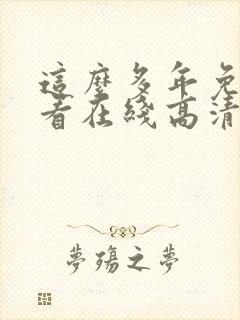 這麼多年免
看在綫高清
夢殤之夢